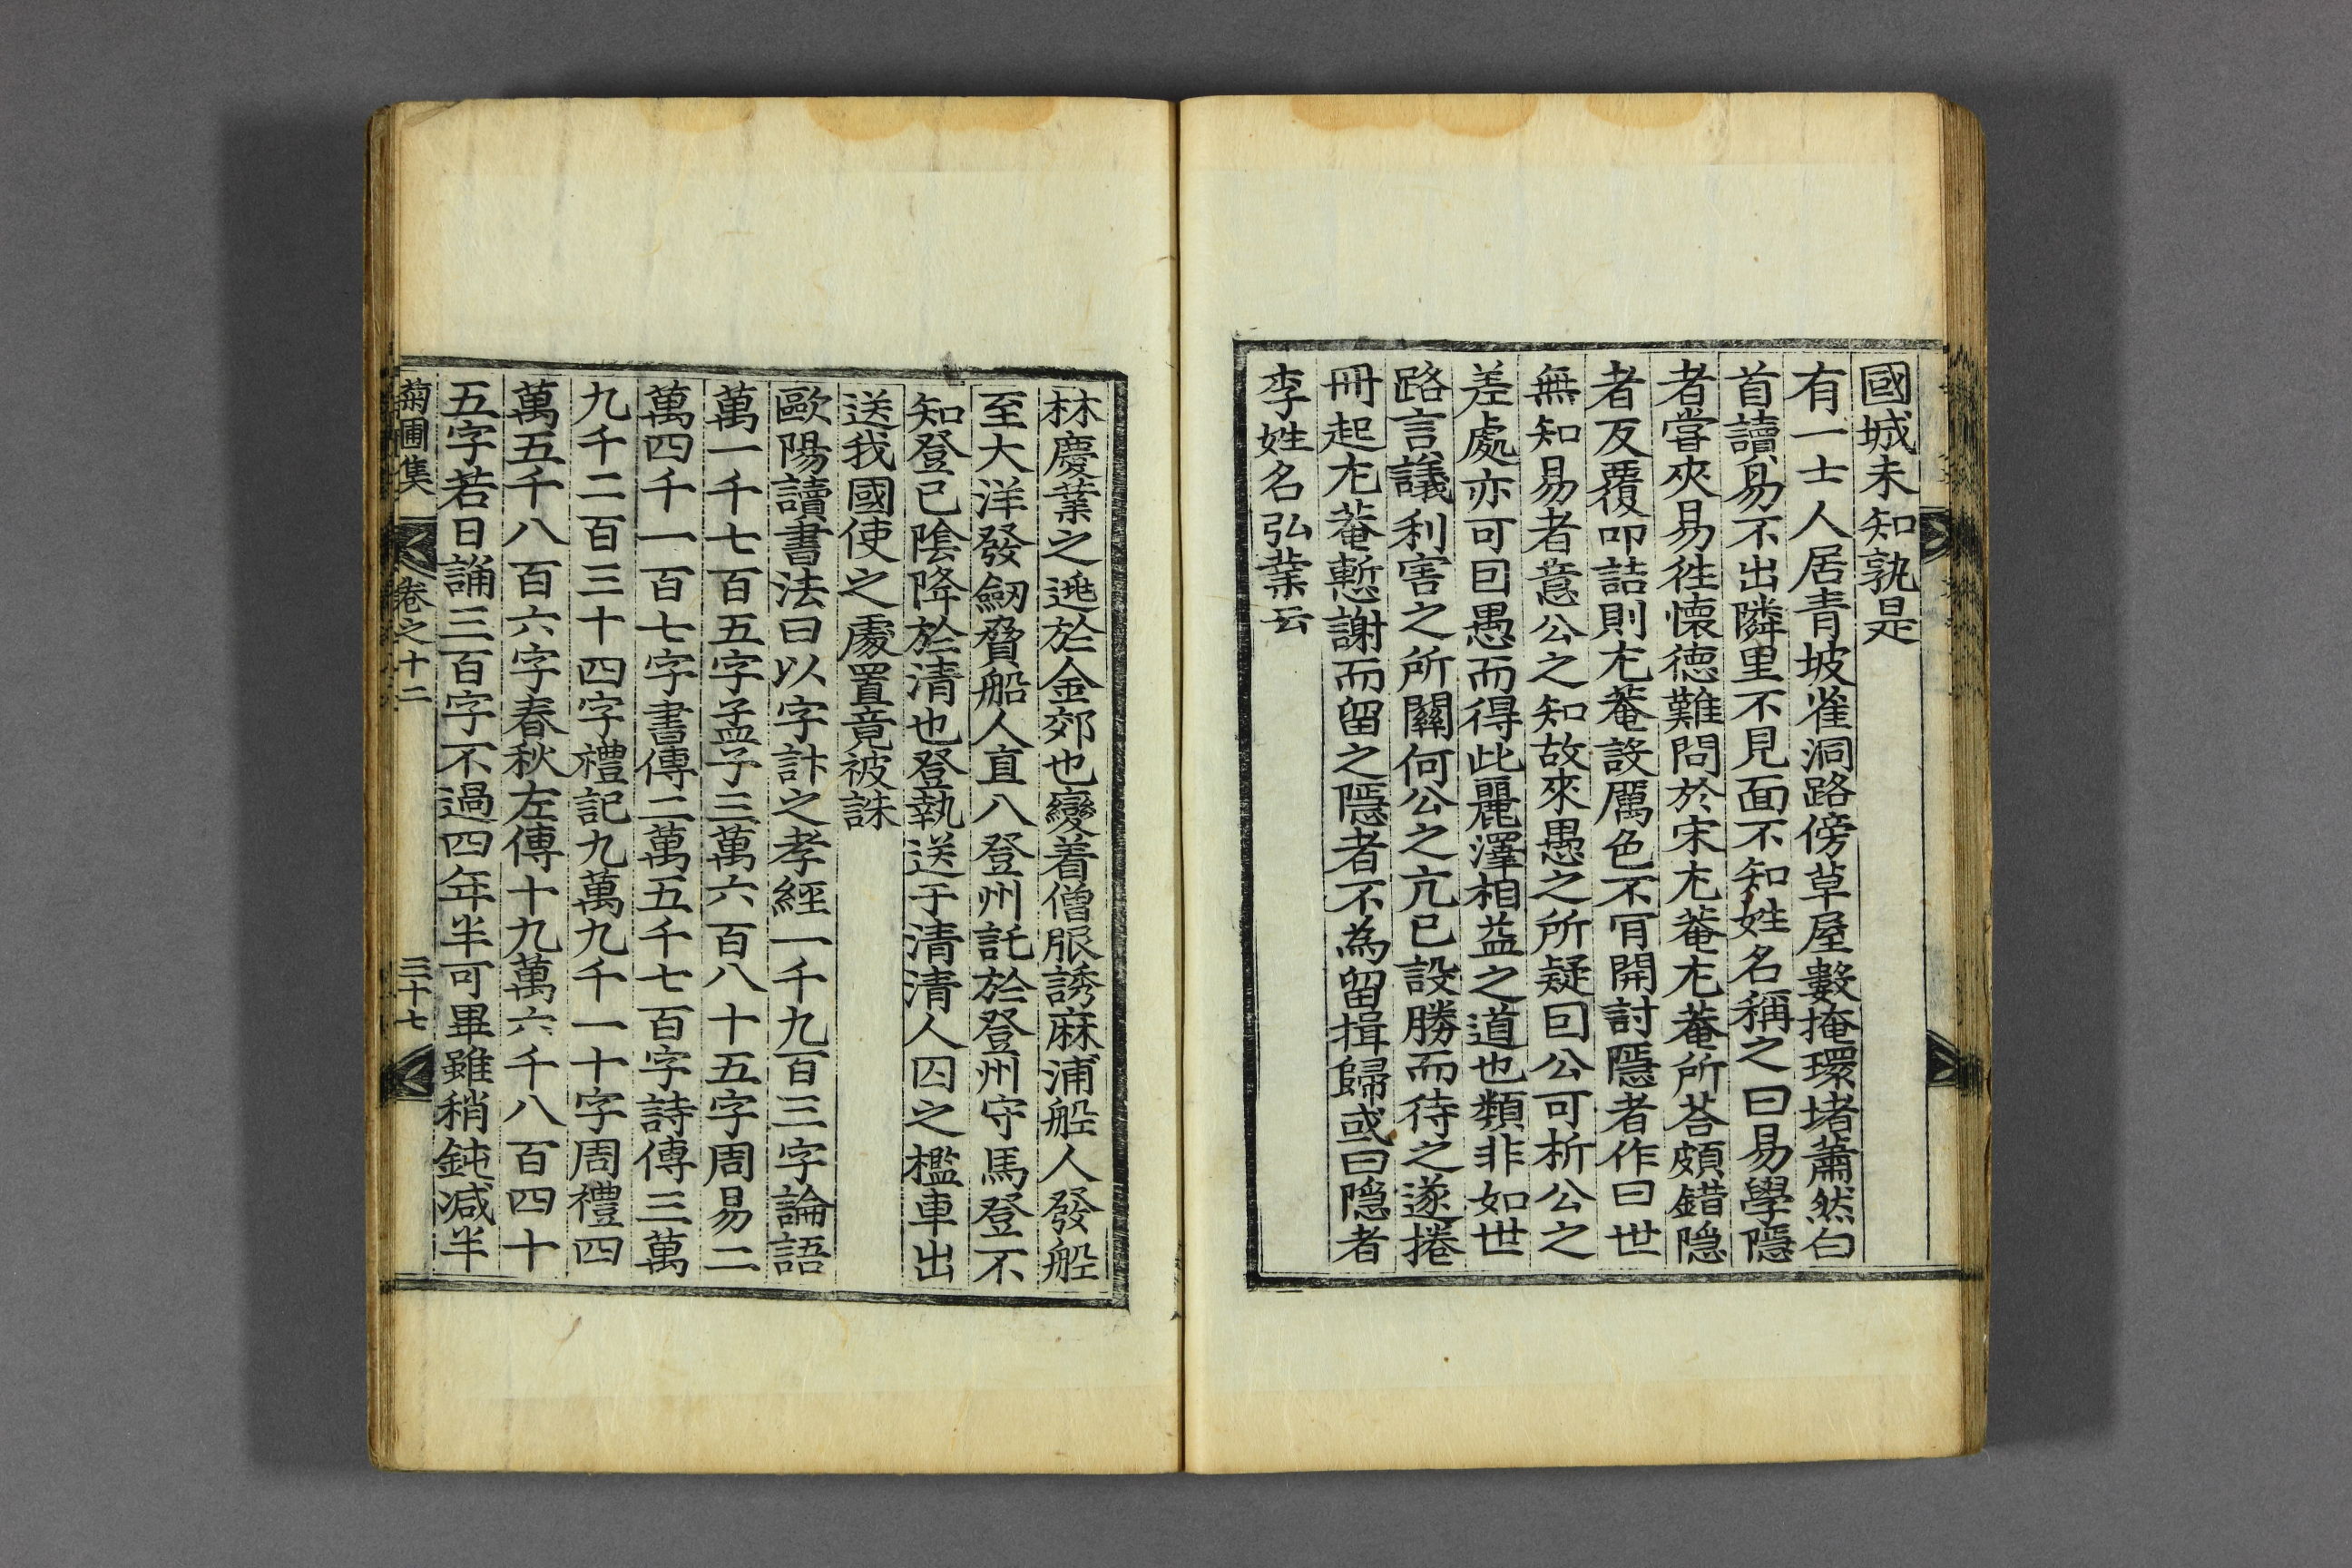 國城未知孰是
有一士人居青坡雀洞路傍草屋數掩環堵蕭然白
首讀易不出隣里不見面不知姓名稱之曰易學隱
者嘗夾易徃懷德難問於宋尤菴尤菴所荅頗錯隱
者反覆叩詰則尤菴設厲色不肎開討隱者作曰世
無知易者意公之知故來愚之所疑囙公可析公之
差處亦可囙愚而得此麗澤相益之道也類非如世
路言議利害之所關何公之亢已設勝而待之遂捲
冊起尤菴慙謝而留之隱者不為留揖歸或曰隱者
李姓名弘業云
林慶業之逃於金郊也變着僧服誘麻浦船人發船
至大洋發劒脅船人直入登州託於登州守馬登不
知登已陰降於清也登執送于清清人囚之檻車出
送我國使之處置竟被誅
歐陽讀書法曰以字計之孝經一千九百三字論語
萬一千七百五字孟子三萬六百八十五字周易二
萬四千一百七字書傳二萬五千七百字詩傳三萬
九千二百三十四字禮記九萬九千一十字周禮四
萬五千八百六字春秋左傳十九萬六千八百四十
五字若日誦三百字不過四年半可畢雖稍鈍减半
菊圃集 卷之十二 三十七